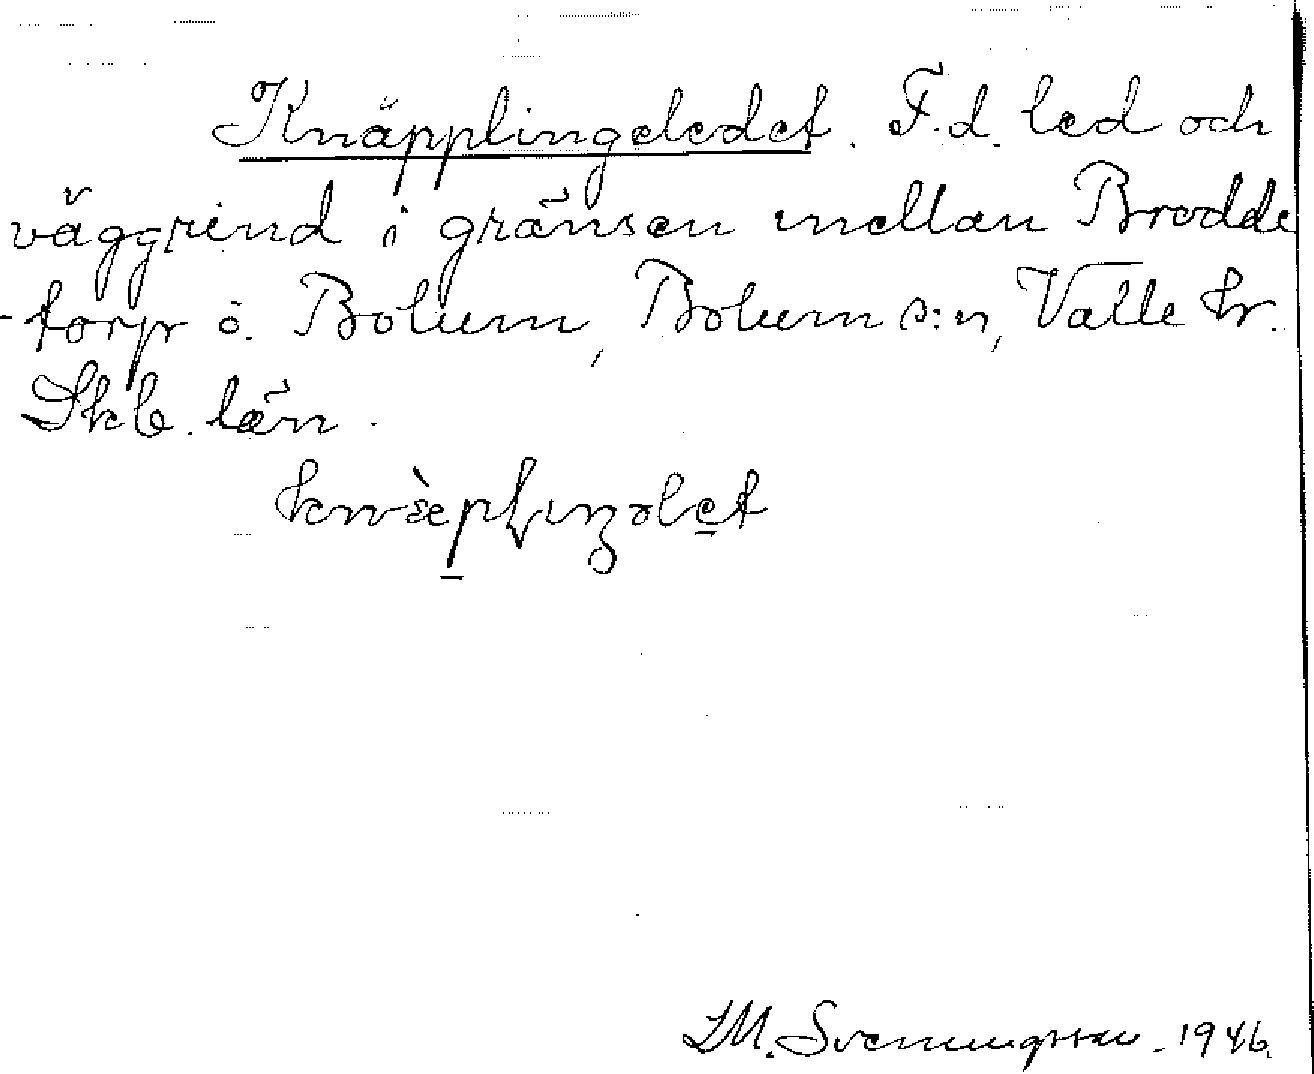 Knäpplingeledet. F.d. led och
väggrind i gränsen mellan Brodde
-torp o. Bolum, Bolum s:n, Valle hr.
Skb. län.
knæ̀plıŋəlet
L.M. Svenungsson. 1946.